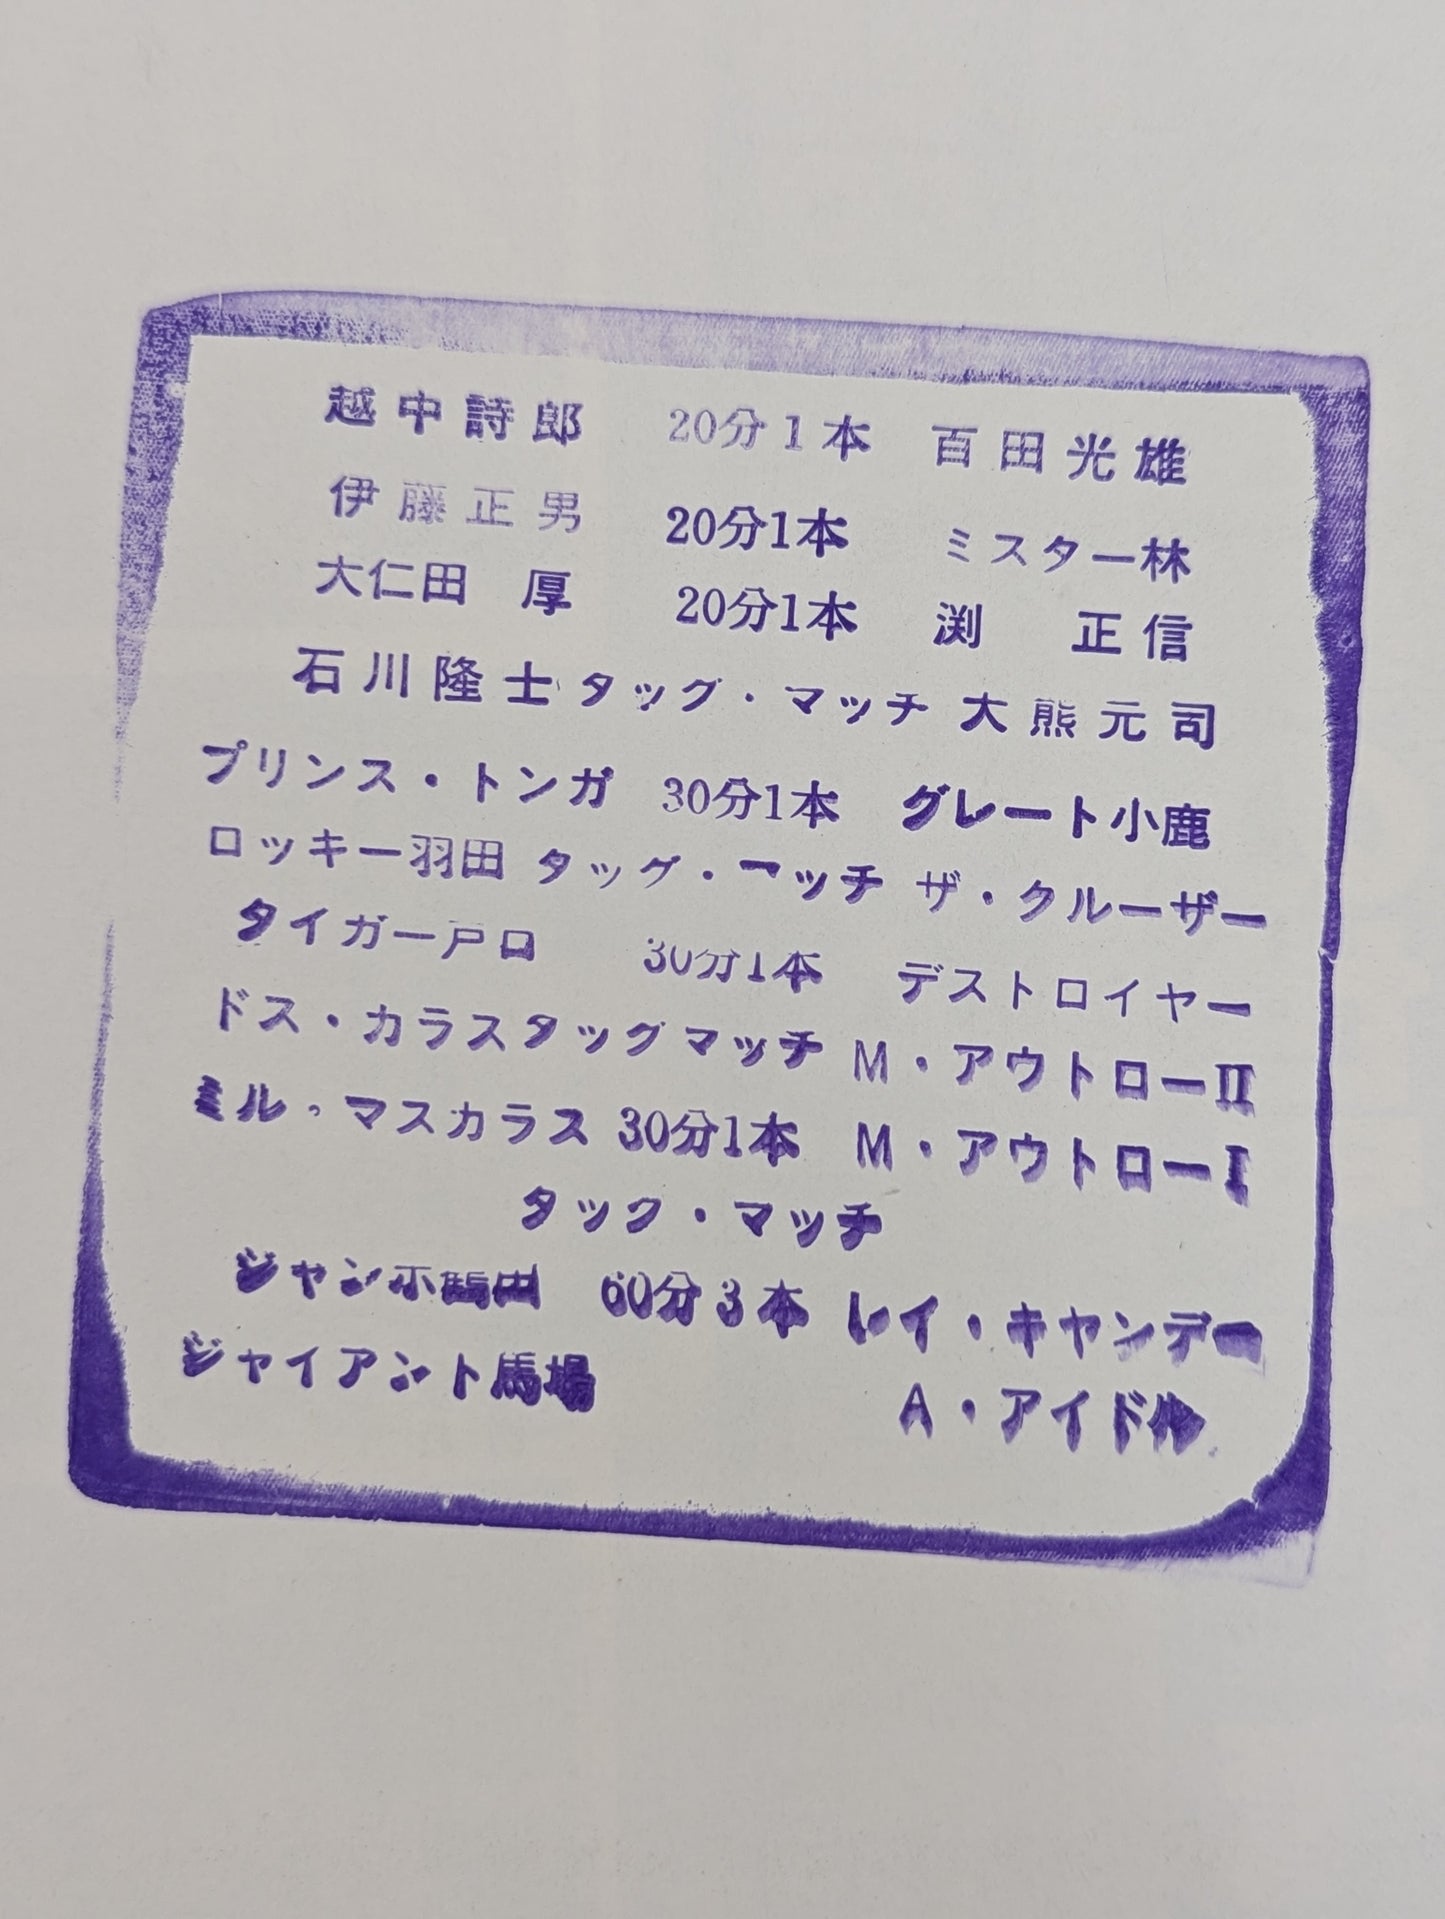 越中詩郎 20分1本 百田光雄
伊藤正男 20分1本 ミスター林
大仁田 厚 20分1本 渕 正信
石川隆士 タッグ・マッチ 大熊元司
プリンス・トンガ 30分1本 グレート小鹿
ロッキー羽田 タッグ・マッチ ザ・クルーザー
タイガー戸口 30分1本 デストロイヤー
ドス・カラス タッグマッチ M・アウトローII
ミル・マスカラス 30分1本 M・アウトローI
タッグ・マッチ
ジャンボ鶴田 60分3本 レイ・キャンデー
ジャイアント馬場 A・アイドル